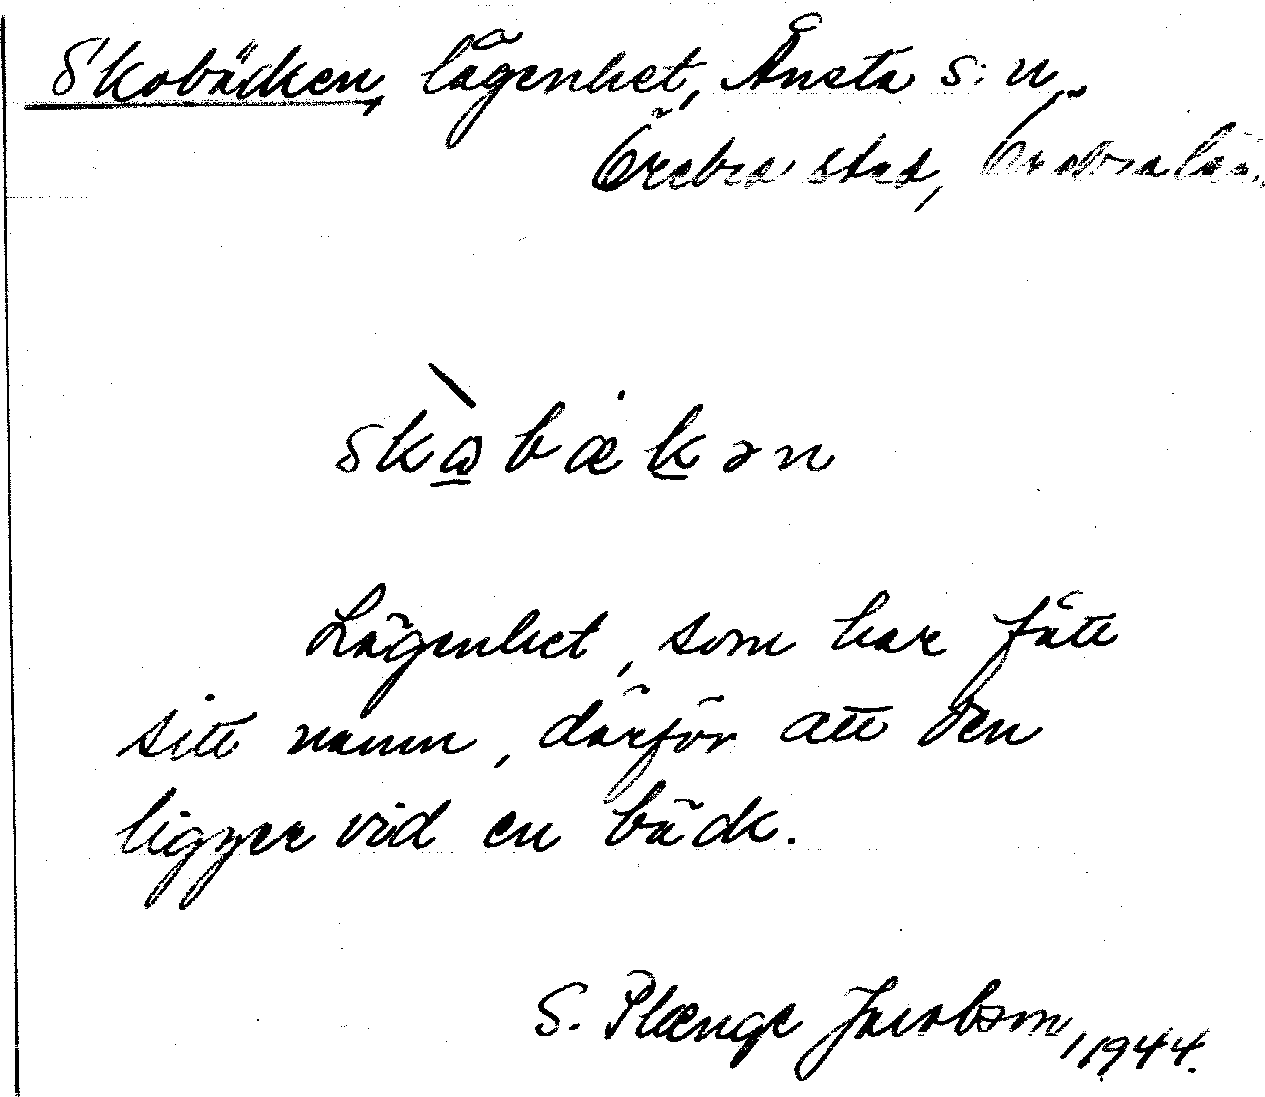 Skobäcken, lägenhet, Ånsta s:n,
Örebro stad, Örebro län.
skὼbækən
Lägenhet, som har fått
sitt namn, därför att den
ligger vid en bäck.
S. Plænge Jacobson, 1944.